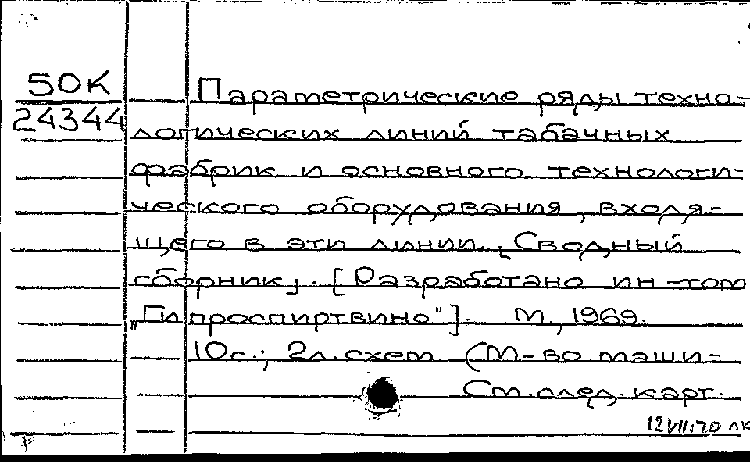 50К
24344
Параметрические ряды техно-
логических линий табачных
фабрик и основного технологи-
ческого оборудования, входя-
щего в эти линии. [Сводный
сборник]. [Разработано ин-том
„Гипроспиртвино"]. М., 1969.
10с.; 2л.схем (М-во маши-
См.след.карт.
12VII.70 лк